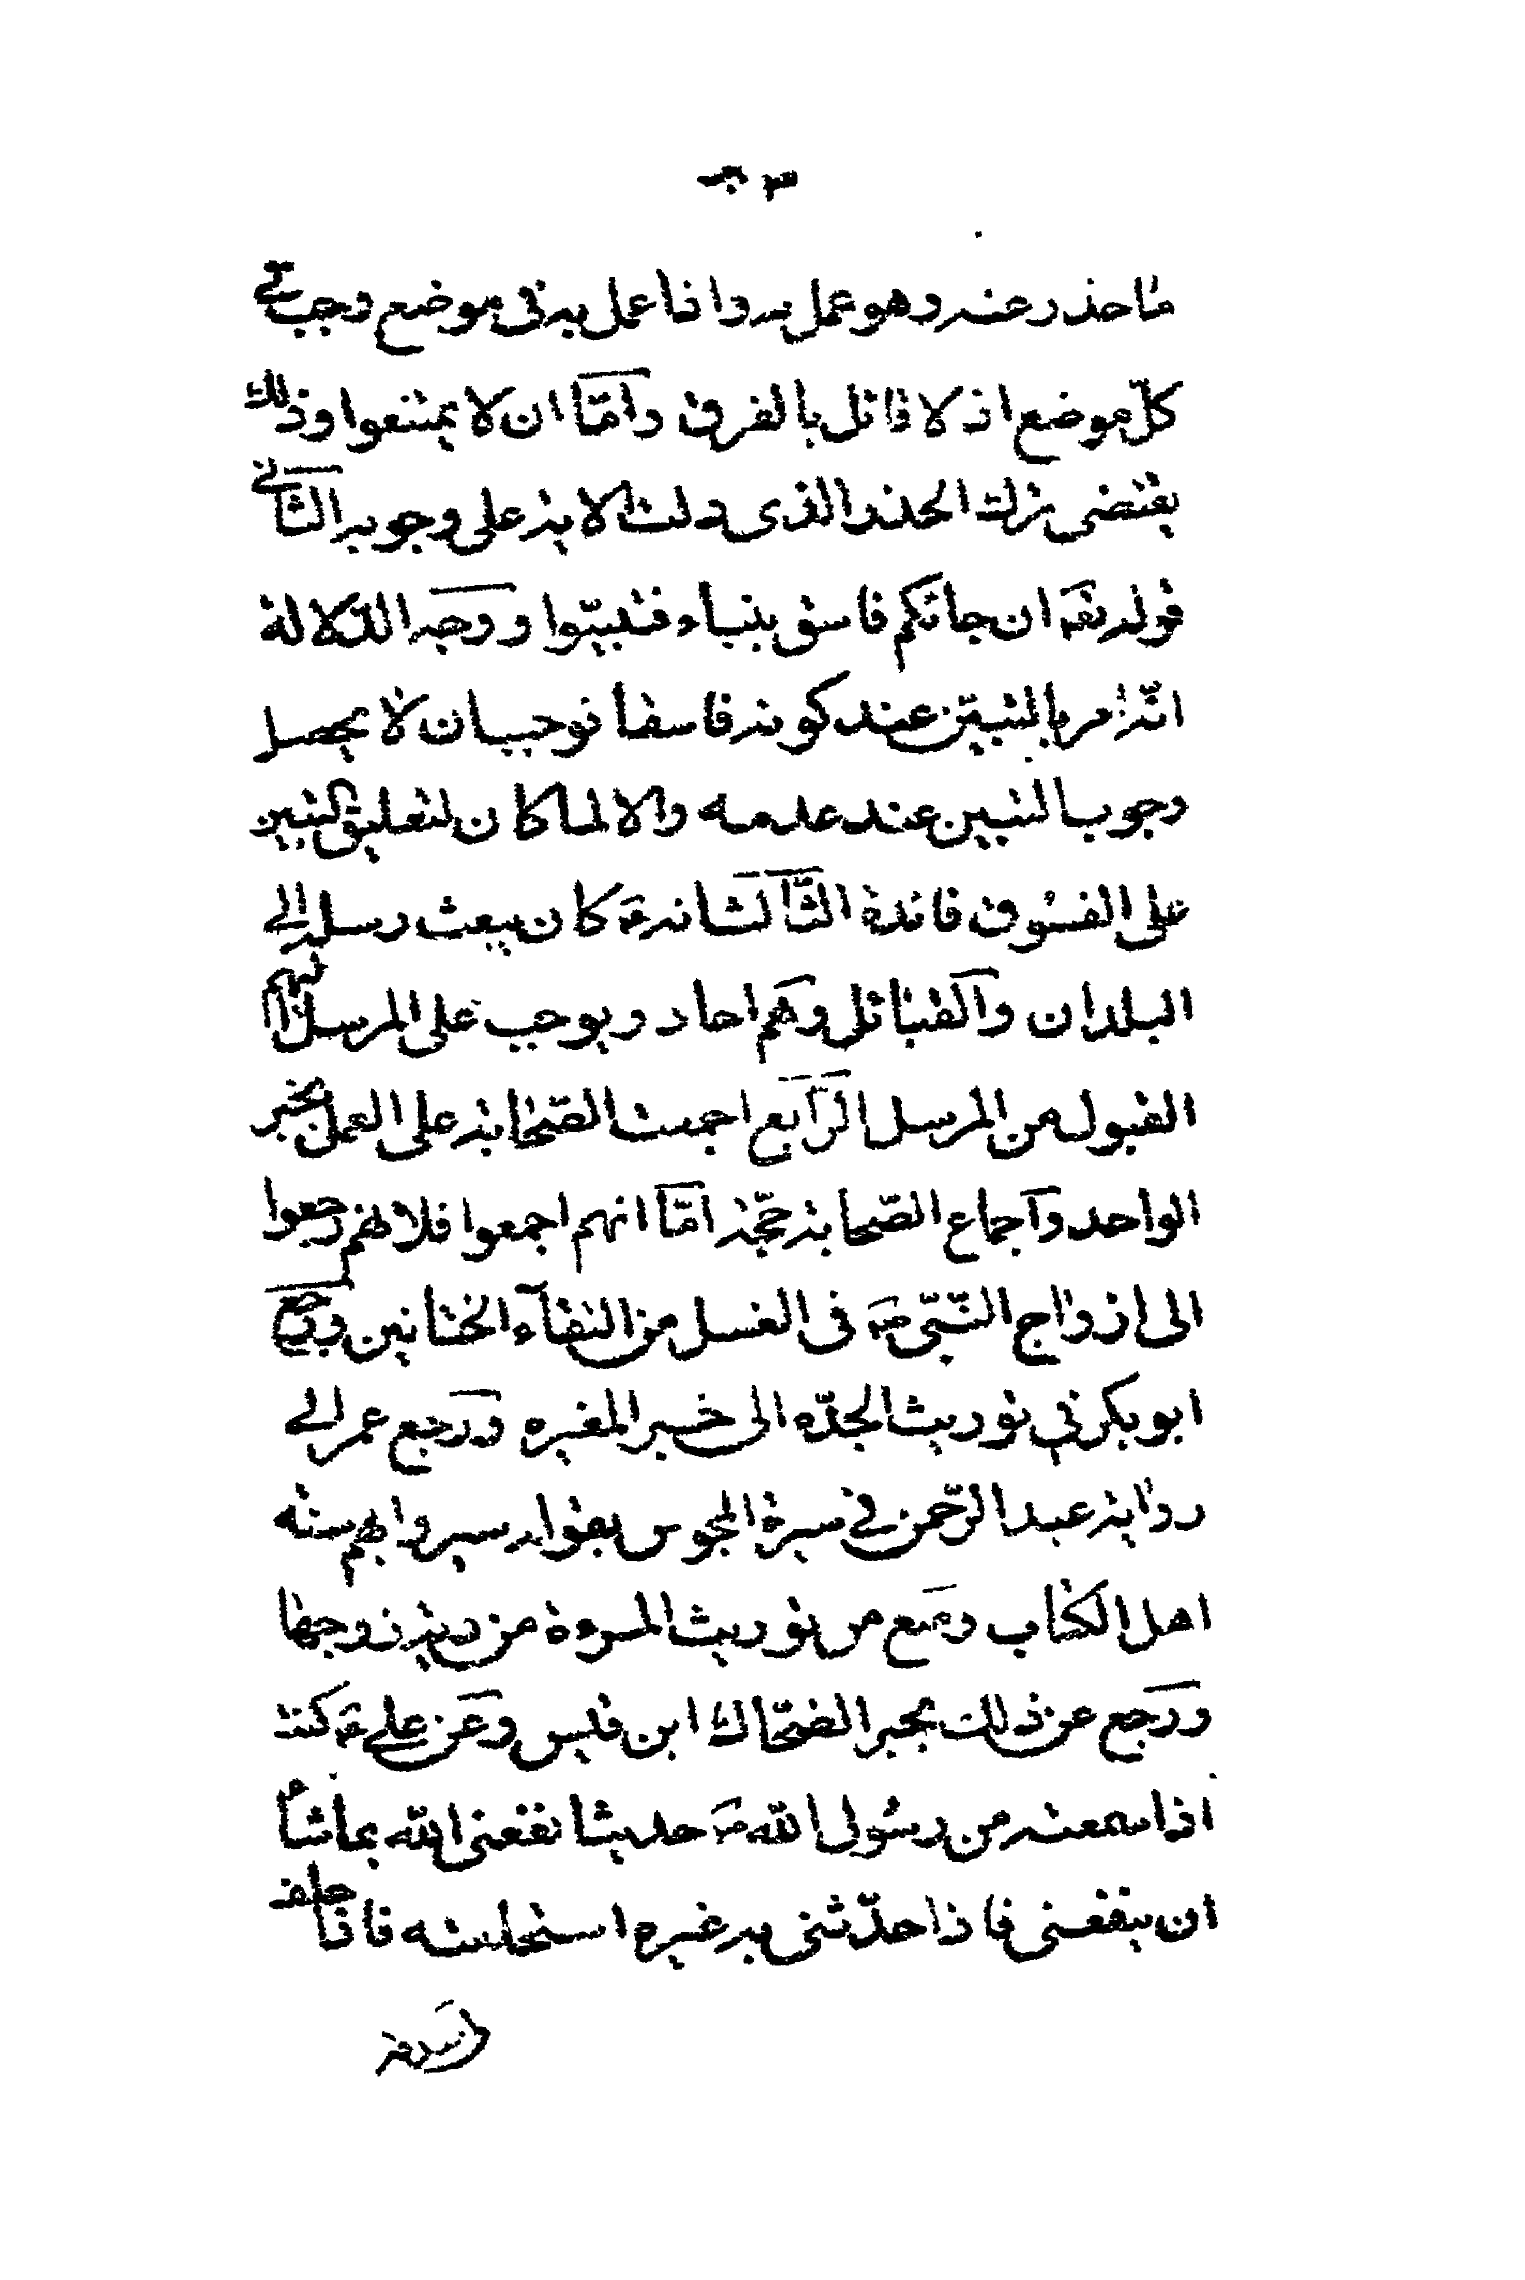 ما حذر عنه وهو عمل به واذا عمل به فى موضع وجب فى
كلّ موضع اذ لا قائل بالفرق وامّا ان لا يمتنعوا وذلك
يقتضى ترك الحذر الذى دلت الاية على وجوبه الثانى
قوله تعه ان جائكم فاسق بنباء فتبيّنوا ووجه الدّلالة
انّه امر بالتبيّن عند كونه فاسقا فوجب ان لا يحصل
وجوب التبين عند عدمه والا لما كان لتعليق التبين
على الفسُوق فائدة الثّالث انه عۤ كان يبعث رسله الى
البلدان والقبائل وهم احاد ويوجب على المرسل اليهم
القبول من المرسل الرّابع اجمعت الصّحابة على العمل بخبر
الواحد واجماع الصّحابة حجّة امّا انهم اجمعوا فلانهم رجعوا
الى ازواج النّبىّ صۤ فى الغسل من التقآء الختانين ورجع
ابو بكر فى توريث الجدّه الى خبر المغيره ورجع عمر الى
رواية عبد الرّحمن فى سيرة المجوس بقوله سيروا بهم سنه
اهل الكتاب ومنع من توريث المرءة من دية زوجها
ورجع عن ذلك بخبر الضّحاك ابن قيس وعن علي عۤ كنت
اذا سمعته من رسُول الله صۤ حديثا نفعنى الله بما شاء
ان ينفعنى فاذا حدّثنى به غيره استحلفته فاذا حلف